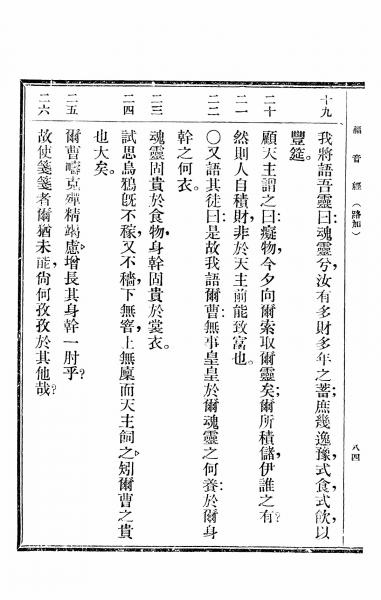 福音經(路加)
八四
十九 我將語吾靈曰:魂靈兮,汝有多財多年之蓄;庶幾逸豫,式食式飲,以
豐筵。
二十 顧天主謂之曰:癡物,今夕向爾索取爾靈矣;爾所積儲,伊誰之有?
二一 然則人自積財,非於天主前能致富也。
二二 ○又語其徒曰:是故我語爾曹:無事皇皇於爾魂靈之何養:於爾身
幹之何衣。
二三 魂靈固貴於食物,身幹固貴於裳衣。
二四 試思烏鴉旣不稼,又不穡,下無窖,上無廩而天主飼之。矧爾曹之貴
也大矣。
二五 爾曹疇克殫精竭慮,增長其身幹一肘乎?
二六 故使箋箋者爾猶未能,尙何孜孜於其他哉?